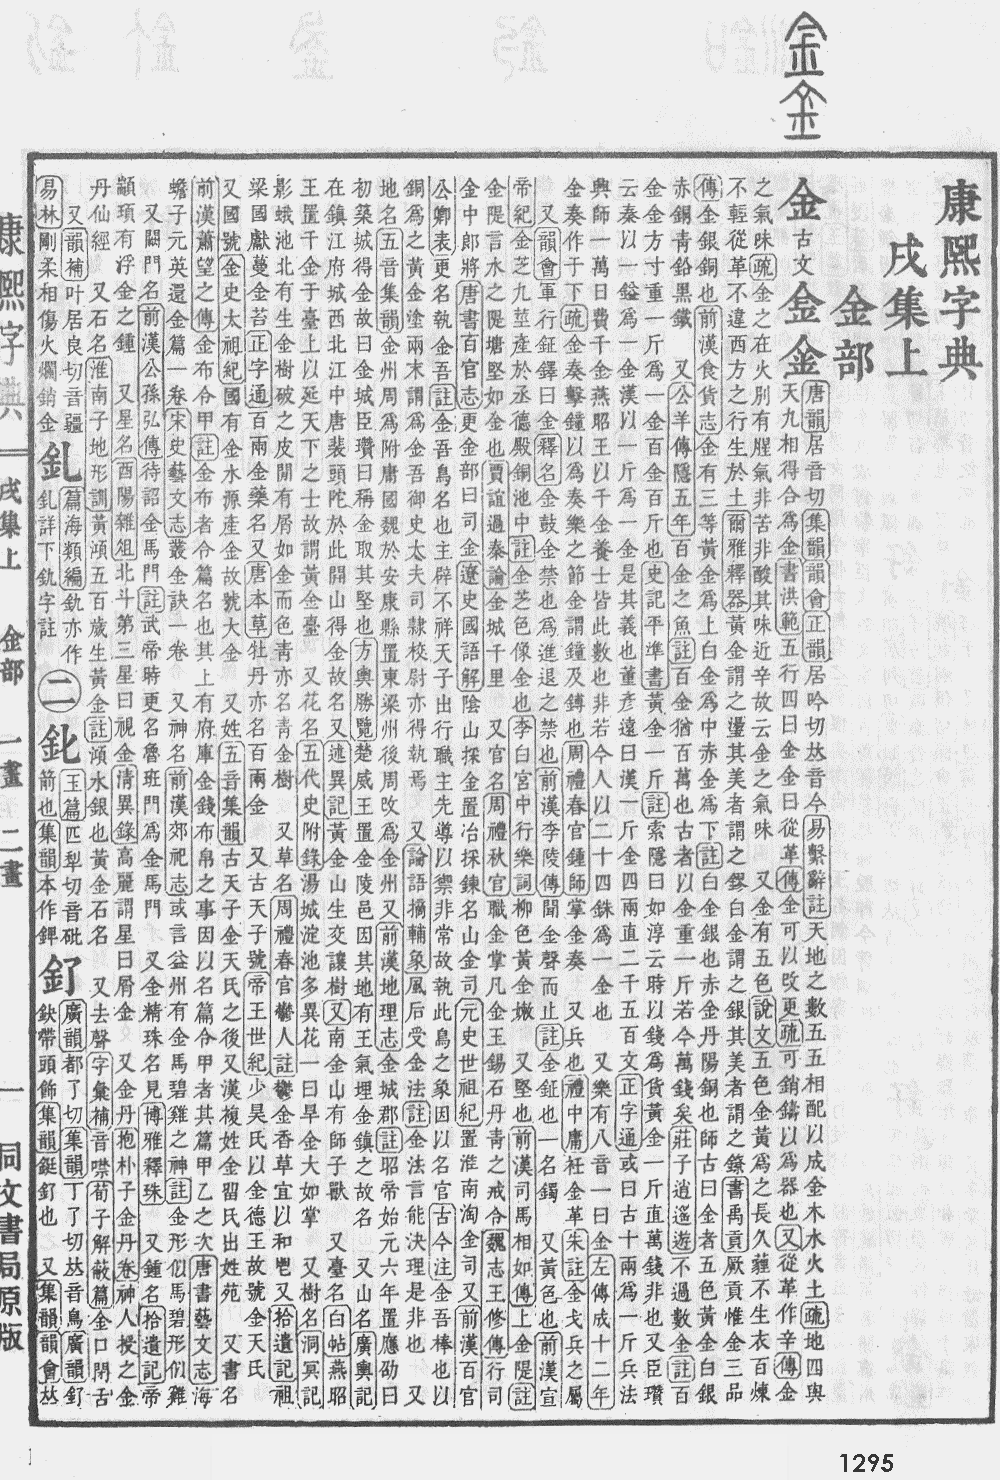 康熙字典
戌集上
金部
金古文𨤾𨤿唐韻居音切集韻韻會正韻居吟切𠀤音今易繫辭註天地之數五五相配以成金木水火土疏地四與
天九相得合爲金書洪範五行四曰金金曰從革傳金可以改更疏可銷鑄以爲器也又從革作辛傳金
之氣味疏金之在火別有腥氣非苦非酸其味近辛故云金之氣味　又金有五色說文五色金黃爲之長久薶不生衣百煉
不輕從革不違西方之行生於土爾雅釋器黃金謂之璗其美者謂之鏐白金謂之銀其美者謂之鐐書禹貢厥貢惟金三品
傳金銀銅也前漢食貨志金有三等黃金爲上白金爲中赤金爲下註白金銀也赤金丹陽銅也師古曰金者五色黃金白銀
赤銅青鉛黑鐵　又公羊傳隱五年百金之魚註百金猶百萬也古者以金重一斤若今萬錢矣莊子逍遙遊不過數金註百
金金方寸重一斤爲一金百金百斤也史記平準書黃金一斤註索隱曰如淳云時以錢爲貨黃金一斤直萬錢非也又臣瓚
云秦以一鎰爲一金漢以一斤爲一金是其義也董彥遠曰漢一斤金四兩直二千五百文正字通或曰古十兩爲一斤兵法
興師一萬日費千金燕昭王以千金養士皆此數也非若今人以二十四銖爲一金也　又樂有八音一曰金左傳成十二年
金奏作于下疏金奏擊鐘以爲奏樂之節金謂鐘及鎛也周禮春官鍾師掌金奏　又兵也禮中庸衽金革朱註金戈兵之屬
又韻會軍行鉦鐸曰金釋名金鼓金禁也爲進退之禁也前漢李陵傳聞金聲而止註金鉦也一名鐲　又黃色也前漢宣
帝紀金芝九莖產於丞德殿銅池中註金芝色像金也李白宮中行樂詞柳色黃金嫩　又堅也前漢司馬相如傳上金隄註
金隄言水之隄塘堅如金也賈誼過秦論金城千里　又官名周禮秋官職金掌凡金玉錫石丹青之戒令魏志王修傳行司
金中郎將唐書百官志更金部曰司金遼史國語解陰山採金置冶採鍊名山金司元史世祖紀置淮南淘金司又前漢百官
公卿表更名執金吾註金吾鳥名也主辟不祥天子出行職主先導以禦非常故執此鳥之象因以名官古今注金吾棒也以
銅爲之黃金塗兩末謂爲金吾御史大夫司隸校尉亦得執焉　又論語摘輔象風后受金法註金法言能決理是非也　又
地名五音集韻金州周爲附庸國魏於安康縣置東梁州後周改爲金州又前漢地理志金城郡註昭帝始元六年置應劭曰
初築城得金故曰金城臣瓚曰稱金取其堅也方輿勝覽楚威王置金陵邑因其地有王氣埋金鎮之故名　又山名廣輿記
在鎮江府城西北江中唐裴頭陀於此開山得金故名又述異記黃金山生交讓樹又南金山有師子獸　又臺名白帖燕昭
王置千金于臺上以延天下之士故謂黃金臺　又花名五代史附錄湯城淀池多異花一曰旱金大如掌　又樹名洞冥記
影蛾池北有生金樹破之皮閒有屑如金而色青亦名青金樹　又草名周禮春官鬱人註鬱金香草宜以和鬯又拾遺記祖
梁國獻蔓金苔正字通百兩金藥名又唐本草牡丹亦名百兩金　又古天子號帝王世紀少昊氏以金德王故號金天氏
又國號金史太祖紀國有金水源產金故號大金　又姓五音集韻古天子金天氏之後又漢複姓金留氏出姓苑　又書名
前漢蕭望之傳金布令甲註金布者令篇名也其上有府庫金錢布帛之事因以名篇令甲者其篇甲乙之次唐書藝文志海
蟾子元英還金篇一卷宋史藝文志叢金訣一卷　又神名前漢郊祀志或言益州有金馬碧雞之神註金形似馬碧形似雞
又闕門名前漢公孫弘傳待詔金馬門註武帝時更名魯班門爲金馬門　又金精珠名見博雅釋珠　又鍾名拾遺記帝
顓頊有浮金之鍾　又星名酉陽雜俎北斗第三星曰視金清異錄高麗謂星曰屑金　又金丹抱朴子金丹卷神人授之金
丹仙經　又石名淮南子地形訓黃澒五百歲生黃金註澒水銀也黃金石名　又去聲字彙補音噤荀子解蔽篇金口閉舌
又韻補叶居良切音疆
易林剛柔相傷火爛銷金
釓篇海類編釚亦作
釓詳下釚字註
二
𨥁玉篇匹𠛬切音砒
箭也集韻本作錍
釕廣韻都了切集韻丁了切𠀤音鳥廣韻釕
鈌帶頭飾集韻鋌釕也　又集韻韻會𠀤
康熙字典　戌集上　金部　一畫　二畫　一　同文書局原版
1295